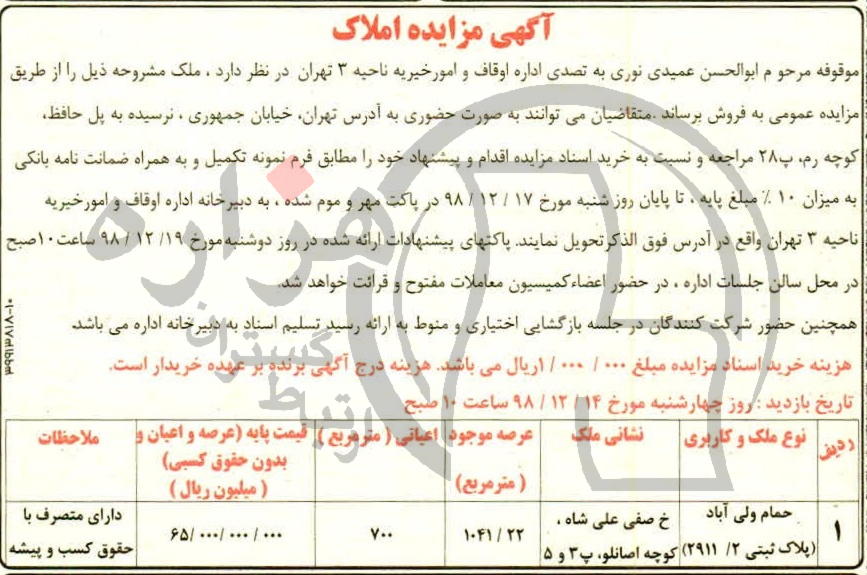 آگهی مزایده املاک
موقوفه مرحو م ابوالحسن عمیدی نوری به تصدی اداره اوقاف و امورخیریه ناحیه ۳ تهران در نظر دارد ، ملک مشروحه ذیل را از طریق
مزایده عمومی به فروش برساند .متقاضیان می توانند به صورت حضوری به آدرس تهران، خیابان جمهوری ، نرسیده به پل حافظ،
کوچه رم، پ۲۸ مراجعه و نسبت به خرید اسناد مزایده اقدام و پیشنهاد خود را مطابق فرم نمونه تکمیل و به همراه ضمانت نامه بانکی
به میزان ۱۰ ٪ مبلغ پایه ، تا پایان روز شنبه مورخ ۱۷ / ۱۲ / ۹۸ در پاکت مهر و موم شده ، به دبیرخانه اداره اوقاف و امورخیریه
ناحیه ۳ تهران واقع در آدرس فوق الذکرتحویل نمایند. پاکتهای پیشنهادات ارائه شده در روز دوشنبه مورخ ۱۹/ ۱۲ / ۹۸ ساعت ۱۰صبح
در محل سالن جلسات اداره ، در حضور اعضاءکمیسیون معاملات مفتوح و قرائت خواهد شد.
همچنین حضور شرکت کنندگان در جلسه بازگشایی اختیاری و منوط به ارائه رسید تسلیم اسناد به دبیرخانه اداره می باشد.
هزینه خرید اسناد مزایده مبلغ ۰۰۰ / ۰۰۰ / ۱ریال می باشد. هزینه درج آگهی برنده بر عهده خریدار است.
تاریخ بازدید : روز چهارشنبه مورخ ۱۴ / ۱۲ / ۹۸ ساعت ۱۰ صبح
۳۹۹۱۳۸۱۸-۱۰
هزاره
گستران
ارتباط
ردیف نوع ملک و کاربری نشانی ملک عرصه موجود ( مترمربع) اعیانی ( مترمربع ) قیمت پایه (عرصه و اعیان و بدون حقوق کسبی) ( میلیون ریال ) ملاحظات
۱ حمام ولی آباد (پلاک ثبتی ۲/ ۲۹۱۱) خ صفی علی شاه ، کوچه اصانلو، پ۳ و ۵ ۲۲ / ۱۰۴۱ ۷۰۰ ۰۰۰ / ۰۰۰/ ۰۰۰/ ۶۵ دارای متصرف با حقوق کسب و پیشه